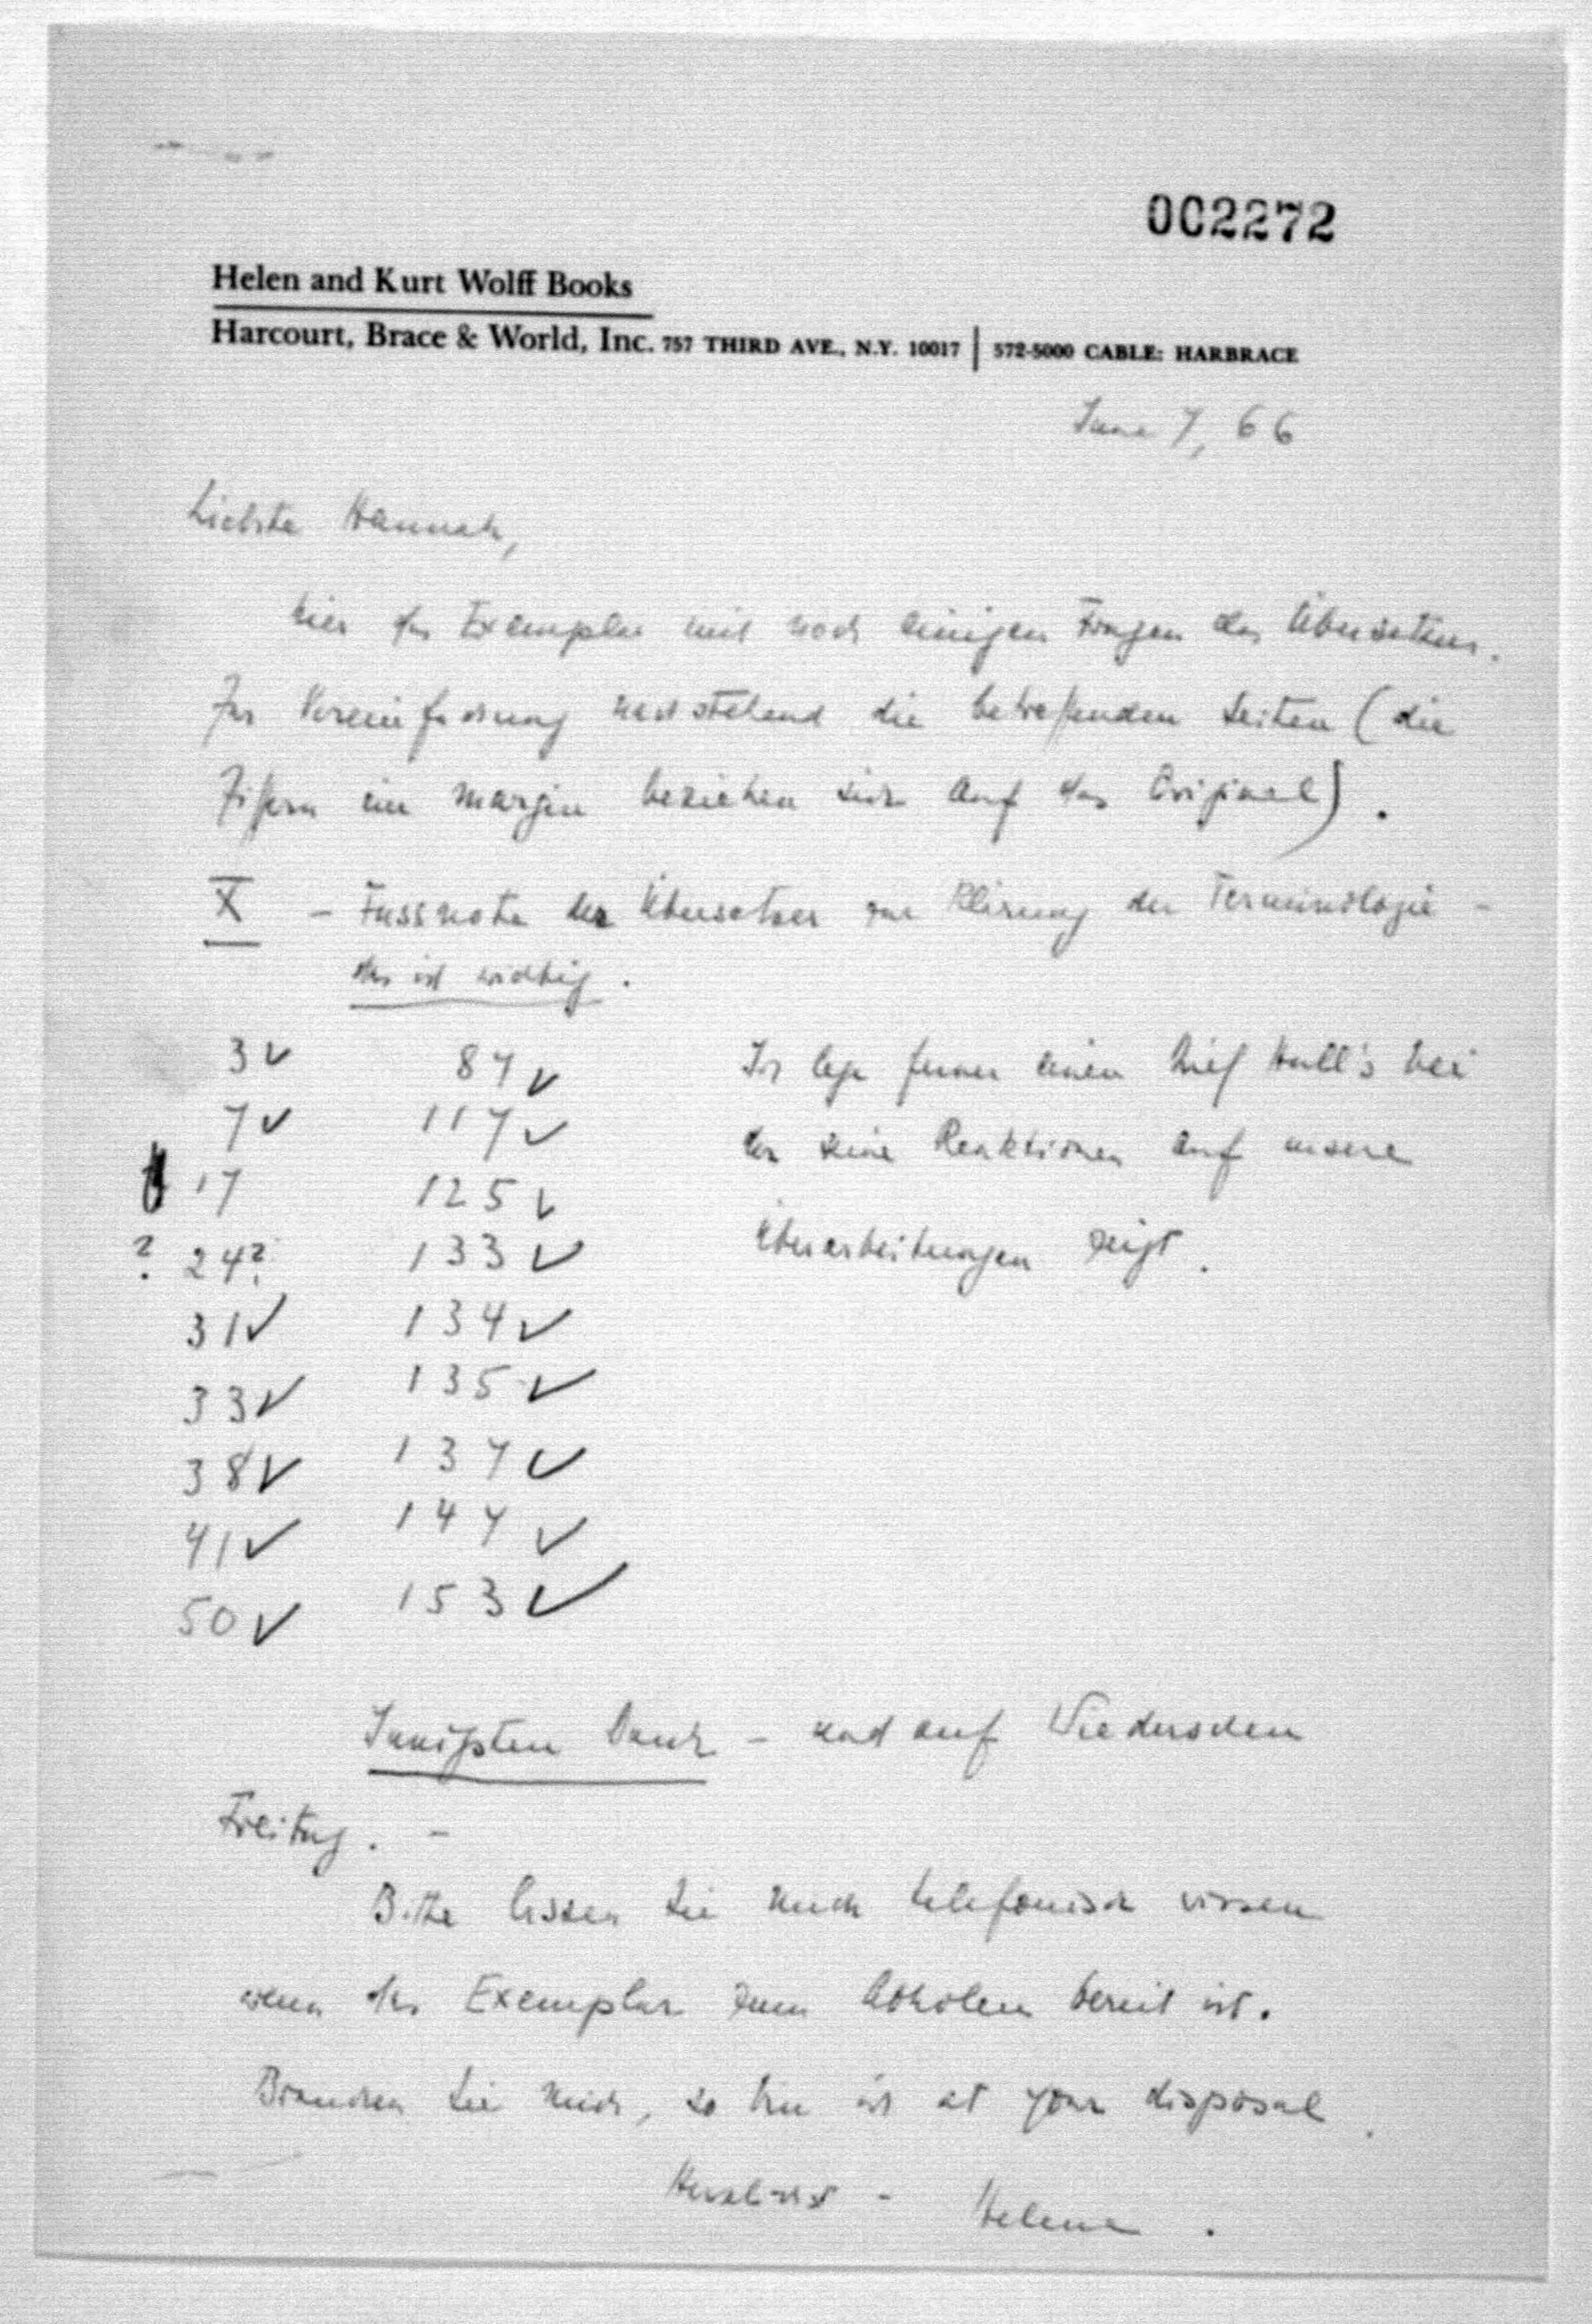 002272
Helen and Kurt Wolff Books
Harcourt, Brace & World, Inc. 757 THIRD AVE., N.Y. 10017 | 572-5000 CABLE: HARBRACE
June 7, 66
Liebste Hannah,
hier das Exemplar mit noch einigen Fragen des Übersetzers.
Zur Vereinfachung nachstehend die betreffenden Seiten (die
Ziffern im margin beziehen sich auf das Original).
X – Fussnote der Übersetzer zur Klärung der Terminologie –
das ist wichtig.
3 ✓ 87 ✓ Ich lege ferner einen Brief Hull's bei
7 ✓ 117 ✓ der seine Reaktionen auf unsere
17 125 ✓
? 24? 133 ✓ Überarbeitungen zeigt.
31 ✓ 134 ✓
33 ✓ 135 ✓
38 ✓ 137 ✓
41 ✓ 147 ✓
50 ✓ 153 ✓
Innigsten Dank – und auf Wiedersehen
Freitag. –
Bitte lassen Sie mich telefonisch wissen
wenn das Exemplar zum Abholen bereit ist.
Brauchen Sie mich, so bin ich at your disposal.
Herzlichst – Helene.